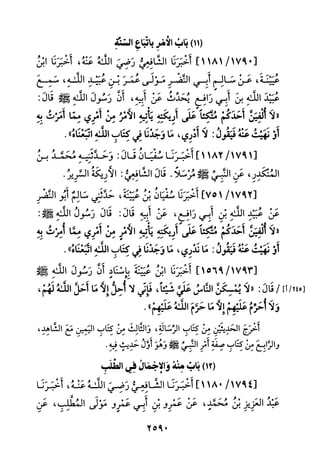 (١١) بَابُ الأَمْرِ بِاتِّبَاعِ السُّنَّةِ
[١٧٩٠/ ١١٨١] أَخْبَرَنَا الشَّافِعِيُّ رَضِيَ اللَّهُ عَنْهُ، أَخْبَرَنَا ابْنُ
عُيَيْنَةَ، عَنْ سَالِمٍ أَبِي النَّضْرِ مَوْلَى عُمَرَ بْنِ عُبَيْدِ اللَّهِ، سَمِعَ
عُبَيْدَ اللَّهِ بنَ أَبِي رَافِعٍ يُحَدِّثُ عَنْ أَبِيهِ، أَنَّ رَسُولَ اللَّهِ ﷺ قَالَ:
«لاَ أُلْفِيَنَّ أَحَدَكُمْ مُتَّكِئاً عَلَى أَرِيكَتِهِ يَأْتِيهِ الأَمْرُ مِنْ أَمْرِي مِمَّا أَمَرْتُ بِهِ
أَوْ نَهَيْتُ عَنْهُ فَيَقُولُ: لاَ أَدْرِي، مَا وَجَدْنَا فِي كِتَابِ اللَّهِ اتَّبَعْنَاهُ».
[١٧٩١/ ١١٨٢] أَخْبَرَنَا سُفْيَانُ قَالَ: وَحَدَّثَنِيهِ مُحَمَّدُ بنُ
المُنْكَدِرِ، عَنِ النَّبِيِّ ﷺ مُرْسَلاً. قَالَ الشَّافِعِيُّ: الأَرِيكَةُ السَّرِيرُ.
[١٧٩٢/ ٧٥١] أَخْبَرَنَا سُفْيَانُ بْنُ عُيَيْنَةَ، حَدَّثَنِي سَالِمٌ أَبُو النَّضْرِ
عَنْ عُبَيْدِ اللَّهِ بْنِ أَبِي رَافِعٍ، عَنْ أَبِيهِ قَالَ: قَالَ رَسُولُ اللَّهِ ﷺ:
«لاَ أُلْفِيَنَّ أَحَدَكُمْ مُتَّكِئاً عَلَى أَرِيكَتِهِ يَأْتِيهِ الأَمْرُ مِنْ أَمْرِي مِمَّا أُمِرْتُ بِهِ
أَوْ نُهِيتُ عَنْهُ فَيَقُولُ: مَا نَدْرِي، مَا وَجَدْنَا فِي كِتَابِ اللَّهِ اتَّبَعْنَاهُ».
[١٧٩٣/ ١٥٦٩] أَخْبَرَنَا ابْنُ عُيَيْنَةَ بِإِسْنَادٍ أَنَّ رَسُولَ اللَّهِ ﷺ
/ قَالَ: «لاَ يُمْسِكَنَّ النَّاسُ عَلَيَّ شَيْئاً، فَإِنِّي لاَ أُحِلُّ إِلاَّ مَا أَحَلَّ اللَّهُ لَهُمْ، [٢٤٥/ أ]
وَلاَ أُحَرِّمُ عَلَيْهِمْ إِلاَّ مَا حَرَّمَ اللَّهُ عَلَيْهِمْ».
أَخْرَجَ الحَدِيثَيْنِ مِنْ كِتَابِ الرِّسَالَةِ، وَالثَّالِثَ مِنْ كِتَابِ اليَمِينِ مَعَ الشَّاهِدِ،
والرَّابِعَ مِنْ كِتَابِ صِفَةِ أَمْرِ النَّبِيِّ ﷺ وَهُوَ أَوَّلُ حَدِيثٍ فِيهِ.
(١٢) بَابٌ مِنْهُ وَالإِجْمَالِ فِي الطَّلَبِ
[١٧٩٤/ ١١٨٠] أَخْبَرَنَا الشَّافِعِيُّ رَضِيَ اللَّهُ عَنْهُ، أَخْبَرَنَا
عَبْدُ العَزِيزِ بْنُ مُحَمَّدٍ، عَنْ عَمْرِو بْنِ أَبِي عَمْرٍو مَوْلَى المُطَّلِبِ، عَنِ
٢٥٩٠